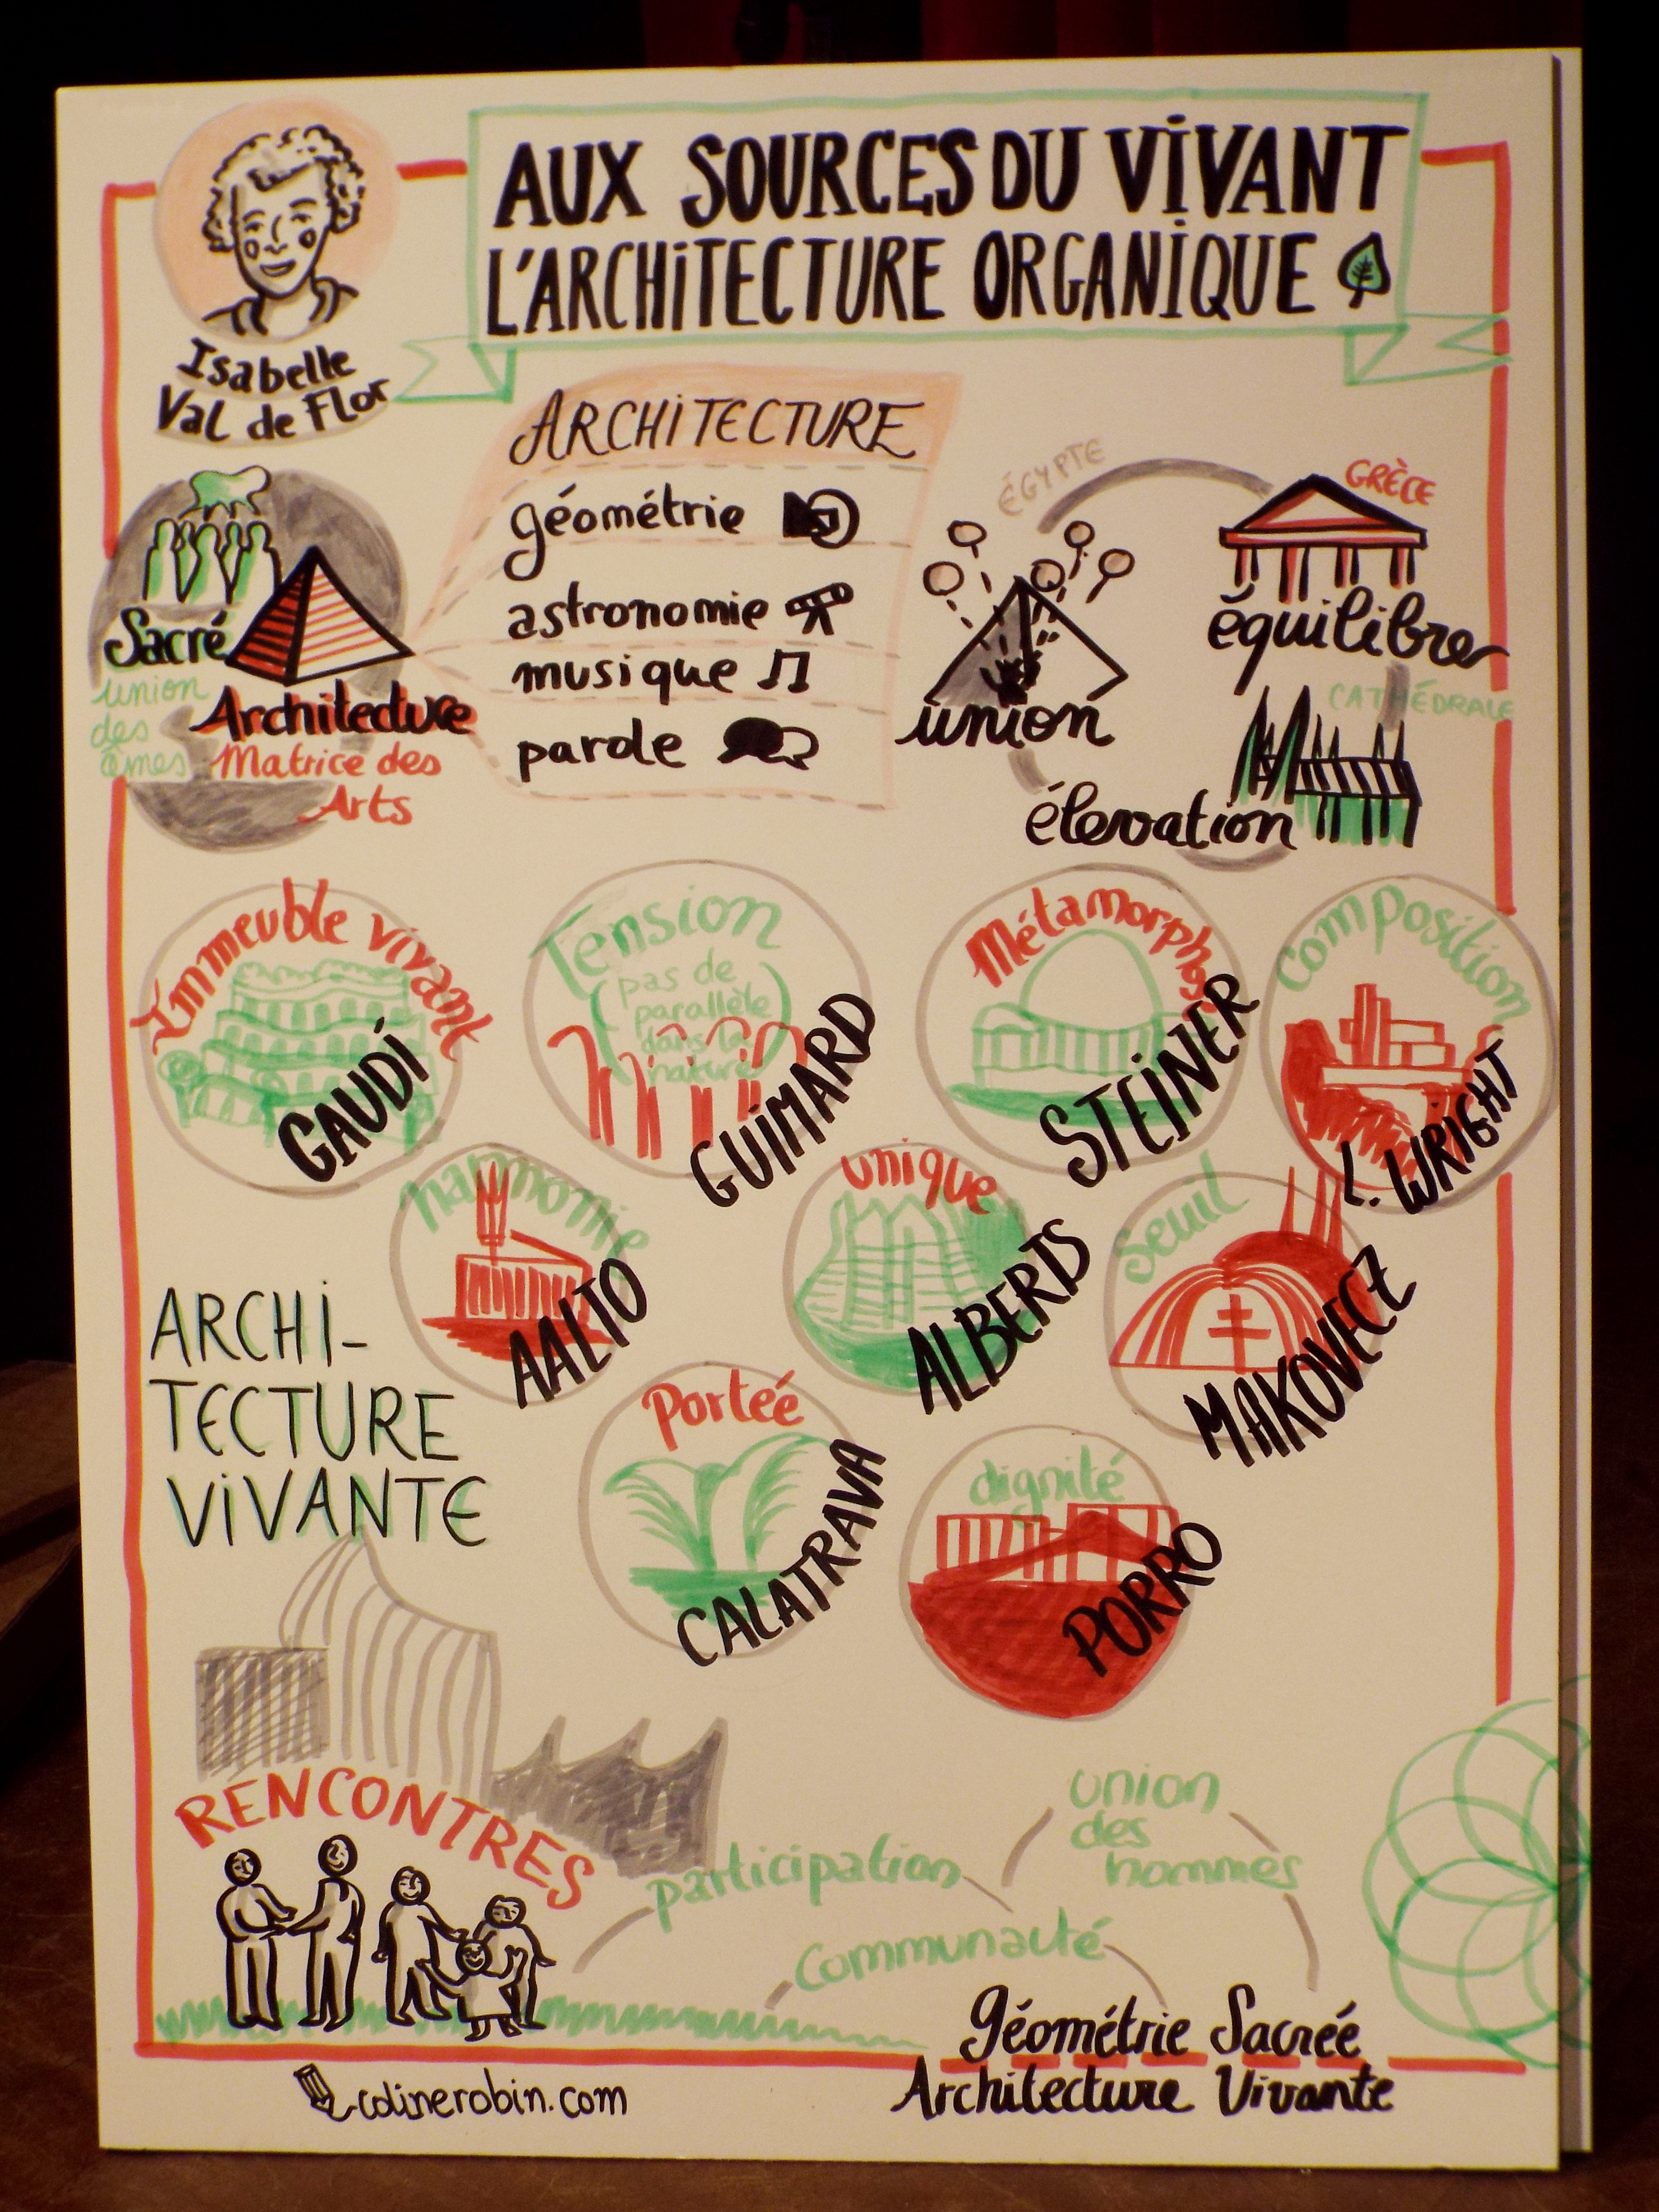 AUX SOURCES DU VIVANT
L'ARCHITECTURE ORGANIQUE
Isabelle
Val de Flor
Sacré
union
des
âmes
Architecture
Matrice des
Arts
ARCHITECTURE
géométrie
astronomie
musique
parole
ÉGYPTE
union
GRÈCE
équilibre
CATHÉDRALE
élevation
Immeuble vivant
GAUDÍ
Tension
(pas de
parallèle
dans la
nature)
GUIMARD
Métamorphose
STEINER
Composition
L. WRIGHT
harmonie
AALTO
unique
ALBERTS
Seuil
MAKOVECZ
ARCHI-
TECTURE
VIVANTE
Porteé
CALATRAVA
dignité
PORRO
RENCONTRES
participation
union
des
hommes
Communauté
Géométrie Sacrée
Architecture Vivante
colinerobin.com